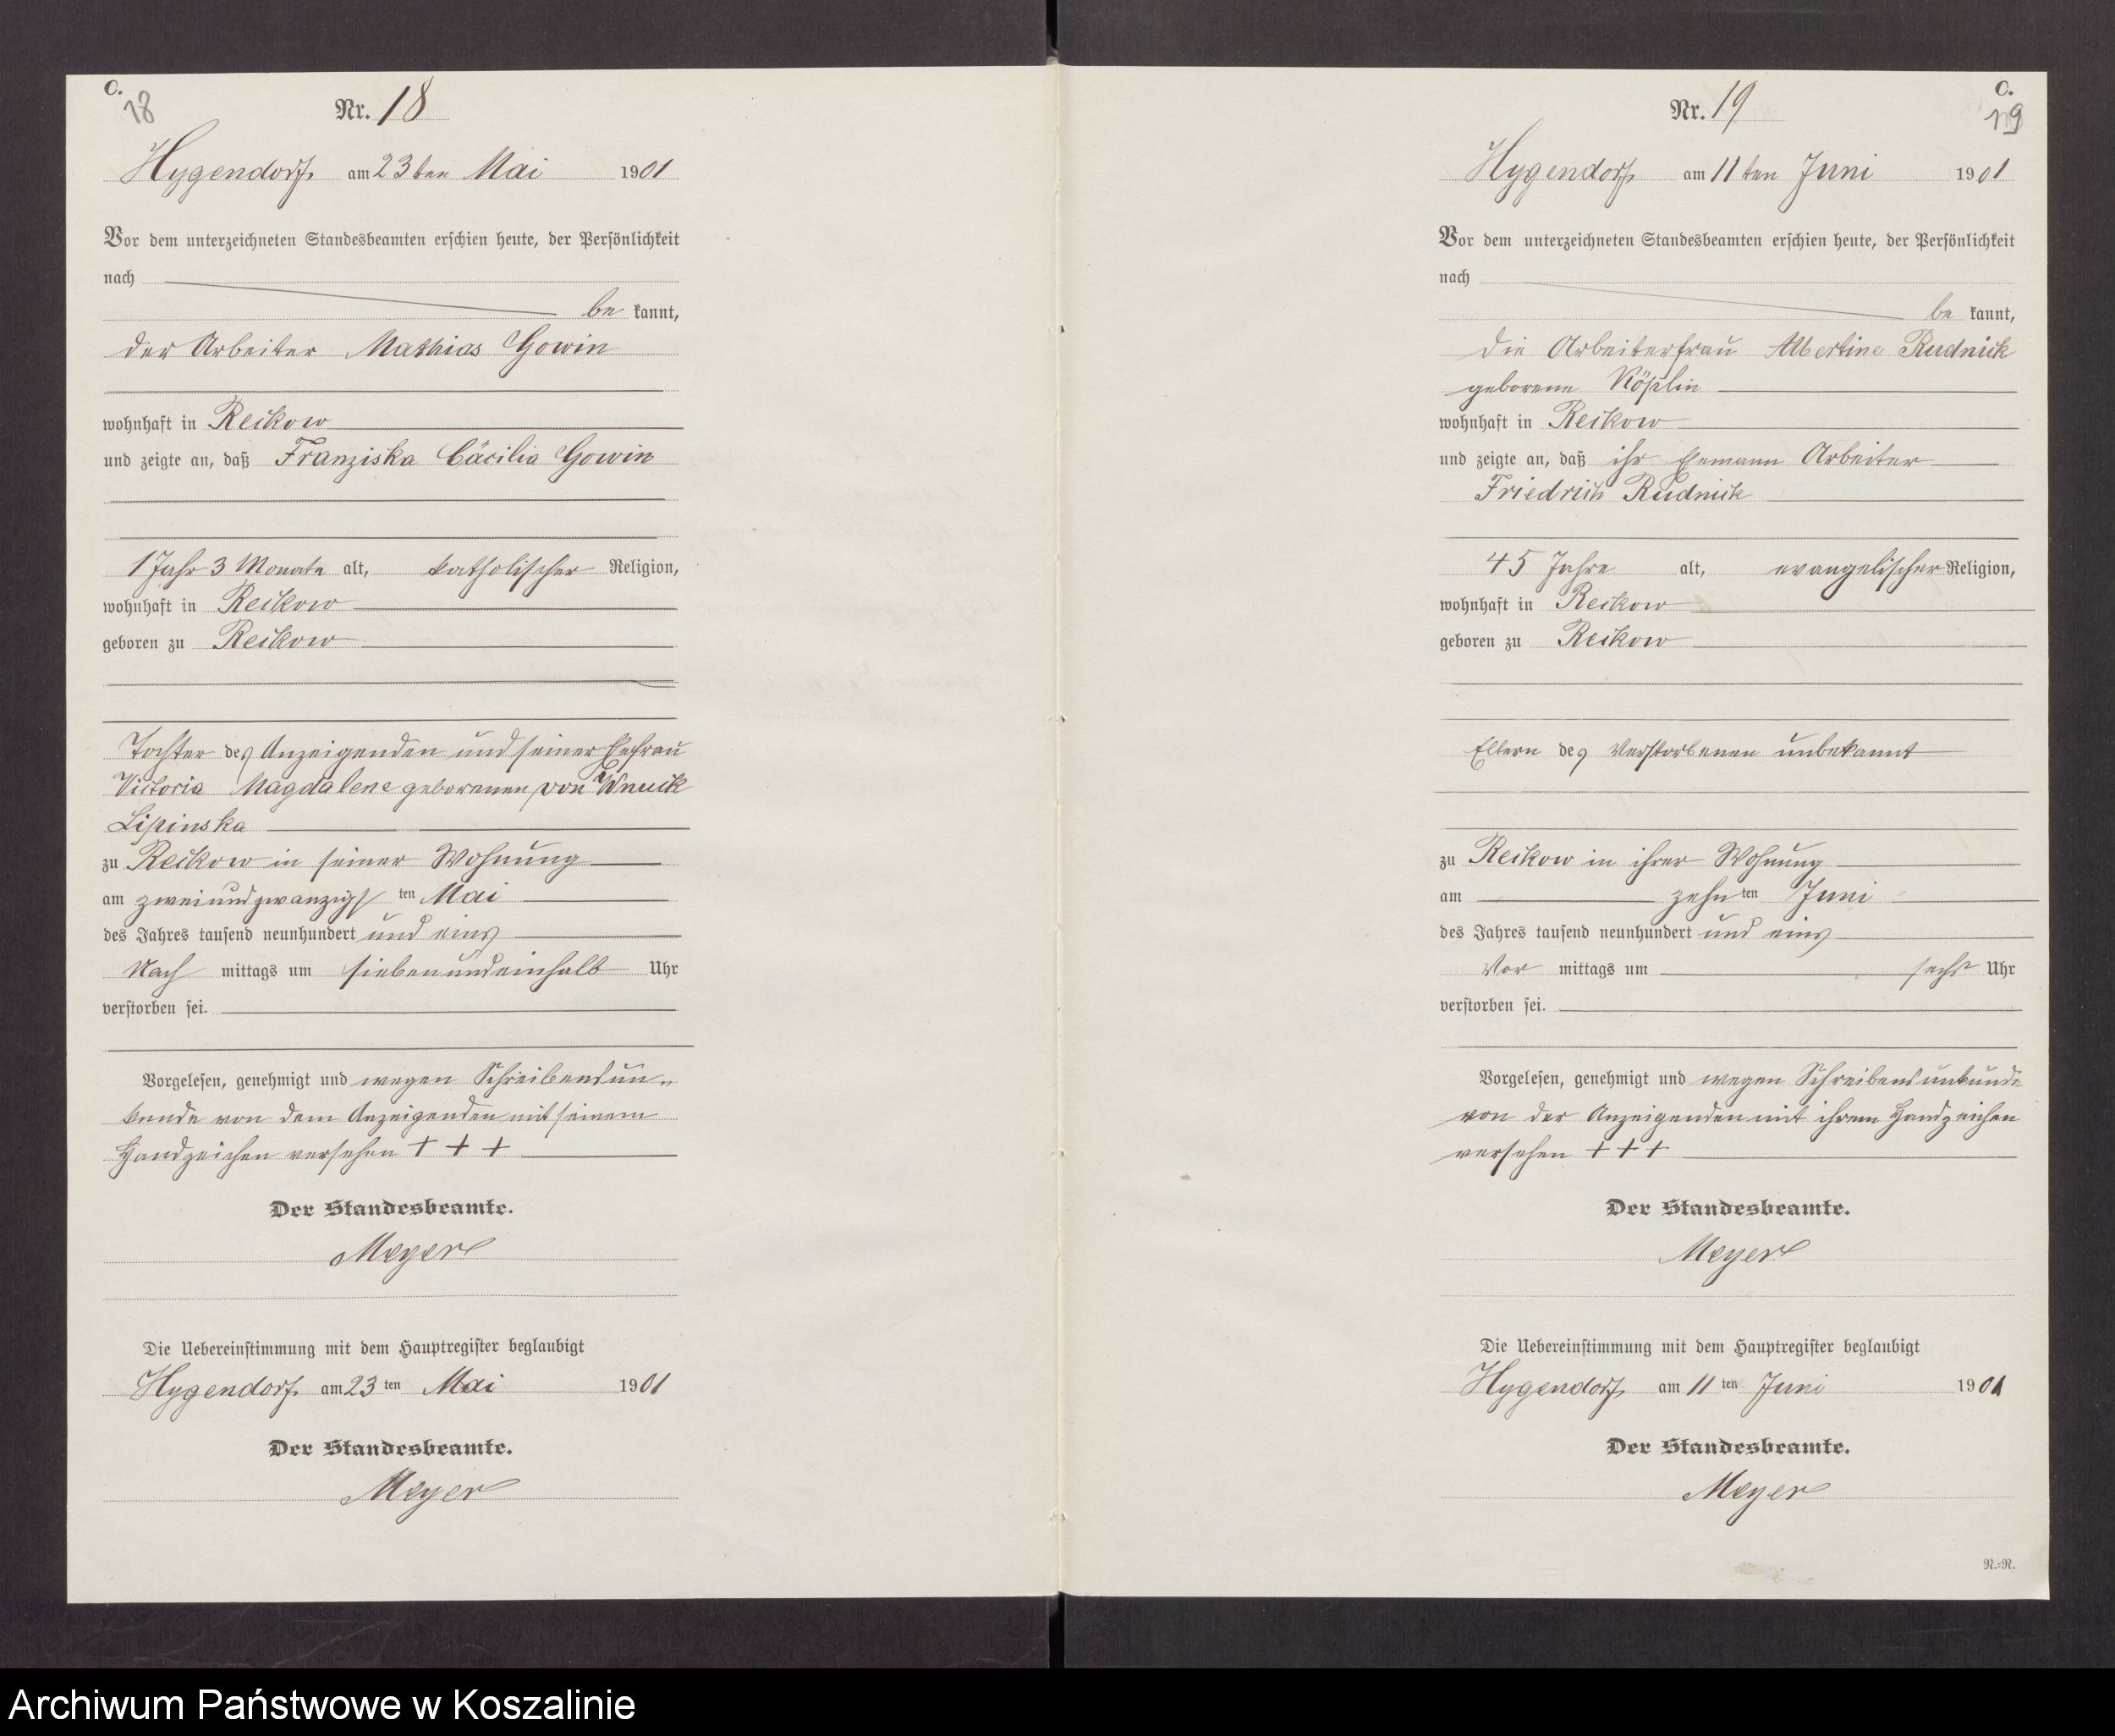 C.
18
Nr. 18
Hygendorf am 23ten Mai 1901
Vor dem unterzeichneten Standesbeamten erschien heute, der Persönlichkeit
nach
be kannt,
der Arbeiter Mathias Gowin
wohnhaft in Reikow
und zeigte an, daß Franziska Cäcilia Gowin
1 Jahr 3 Monate alt, katholischer Religion,
wohnhaft in Reikow
geboren zu Reikow
Tochter des Anzeigenden und seiner Ehefrau
Victoria Magdalene geborenen von Wnuck
Lipinska
zu Reikow in seiner Wohnung
am zweiundzwanzigsten Mai
des Jahres tausend neunhundert und eins
Nach mittags um siebenundeinhalb Uhr
verstorben sei.
Vorgelesen, genehmigt und wegen Schreibensun-
kunde von dem Anzeigenden mit seinem
Handzeichen versehen + + +
Der Standesbeamte.
Meyer
Die Uebereinstimmung mit dem Hauptregister beglaubigt
Hygendorf am 23ten Mai 1901
Der Standesbeamte.
Meyer
C.
19
Nr. 19
Hygendorf am 11ten Juni 1901
Vor dem unterzeichneten Standesbeamten erschien heute, der Persönlichkeit
nach
be kannt,
die Arbeiterfrau Albertine Rudnick
geborene Köplin
wohnhaft in Reikow
und zeigte an, daß ihr Ehemann Arbeiter
Friedrich Rudnick
45 Jahre alt, evangelischer Religion,
wohnhaft in Reikow
geboren zu Reikow
Eltern des Verstorbenen unbekannt
zu Reikow in ihrer Wohnung
am zehnten Juni
des Jahres tausend neunhundert und eins
Vor mittags um sechs Uhr
verstorben sei.
Vorgelesen, genehmigt und wegen Schreibensunkunde
von der Anzeigenden mit ihrem Handzeichen
versehen + + +
Der Standesbeamte.
Meyer
Die Uebereinstimmung mit dem Hauptregister beglaubigt
Hygendorf am 11ten Juni 1901
Der Standesbeamte.
Meyer
N.-R.
Archiwum Państwowe w Koszalinie